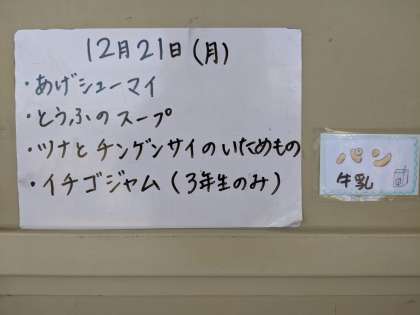 12月21日(月)
・あげシューマイ
・とうふのスープ
・ツナとチンゲンサイのいためもの
・イチゴジャム(3年生のみ)
パン
牛乳